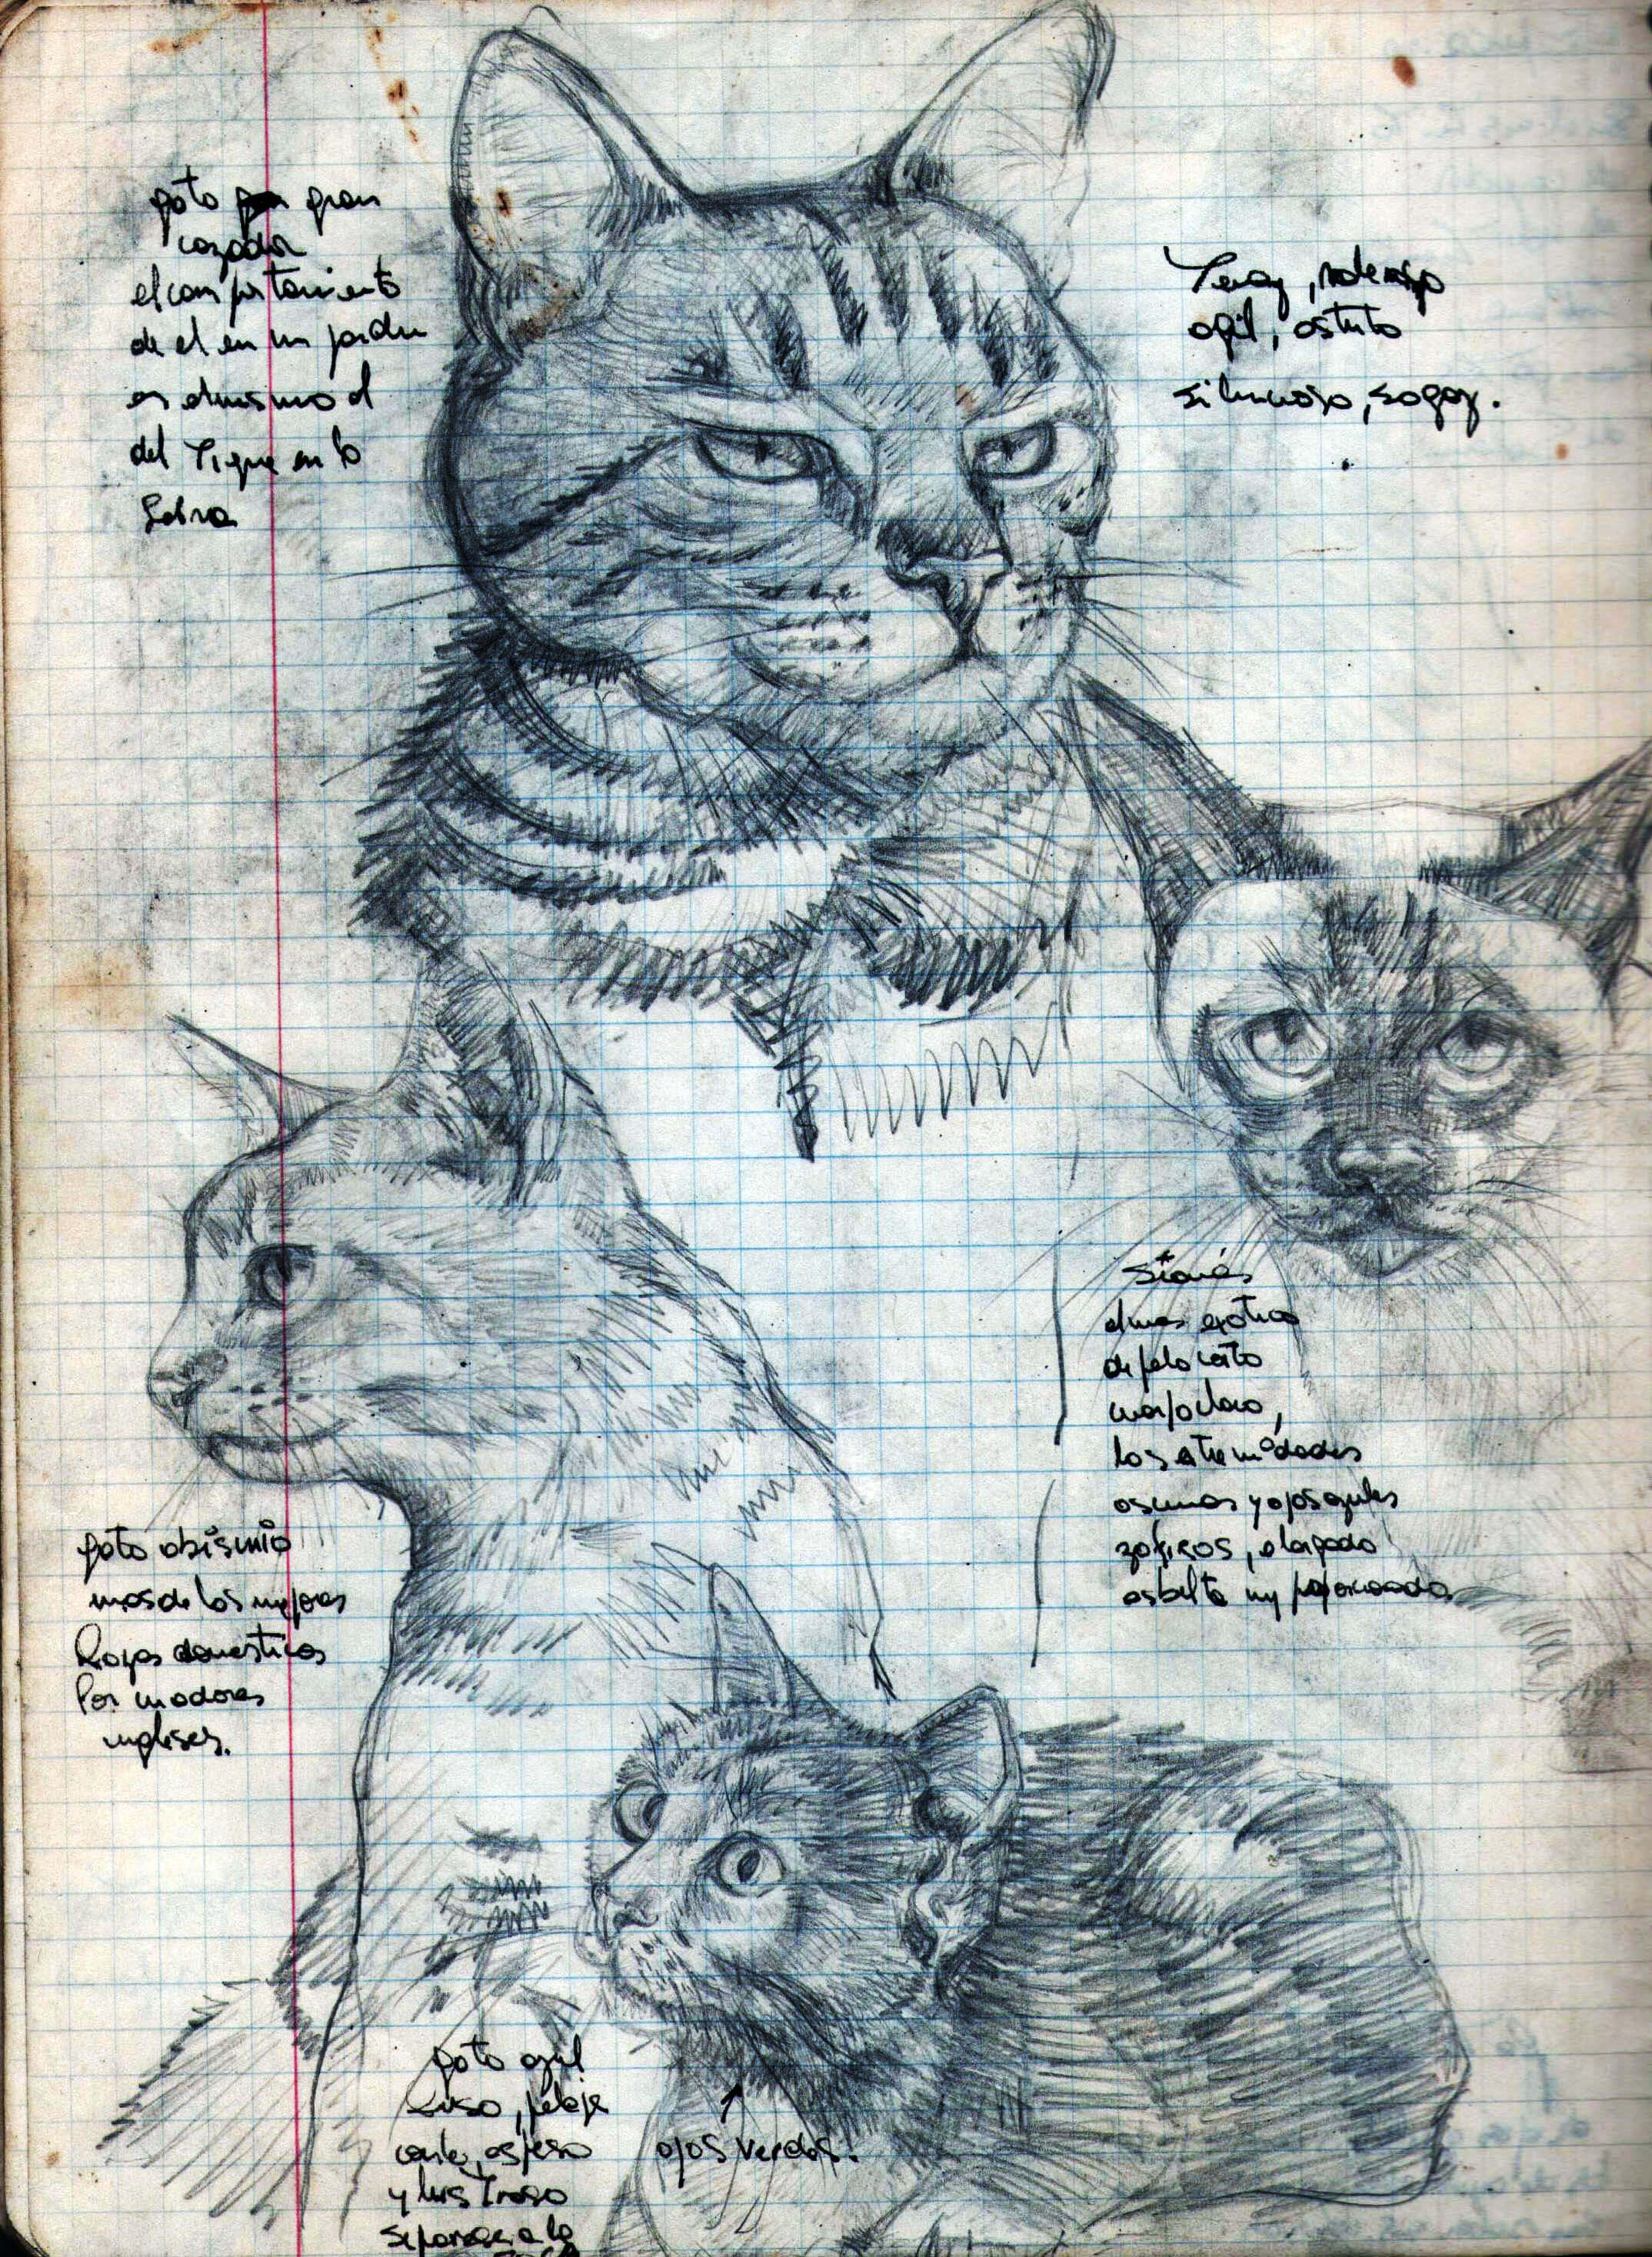 gato gran
cazador
el comportamiento
de el en un jardin
es el mismo al
del Tigre en la
Selva
Tenaz, poderoso
agil, astuto
silencioso, sagaz.
Siamés
el mas exotico
de pelo corto
cuerpo claro,
las extremidades
oscuras y ojos azules
zafiros, alargado
esbelto muy proporcionado
gato abisinio
mas de las mejores
Razas domesticas
Por criadores
ingleses.
gato azul
Ruso, pelaje
corto, espeso
y lustroso
separase a la
ojos verdes.